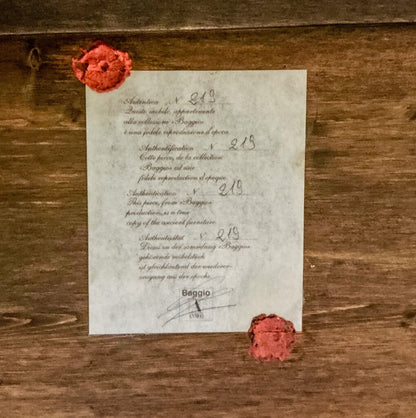 Autentica N 219
Questo mobile, appartenente
alla collezione «Baggio»
è una fedele riproduzione d'epoca.
Authentification N 219
Cette pièce, de la collection
«Baggio» est une
fidele reproduction d'epoque.
Authentication N 219
This piece, from «Baggio»
production, is a true
copy of the ancient furniture.
Authentizität N 219
Dieses zu der sammlung «Baggio»
gehörende möbelstück
ist gleichlautend der
aus der epoche.
Baggio